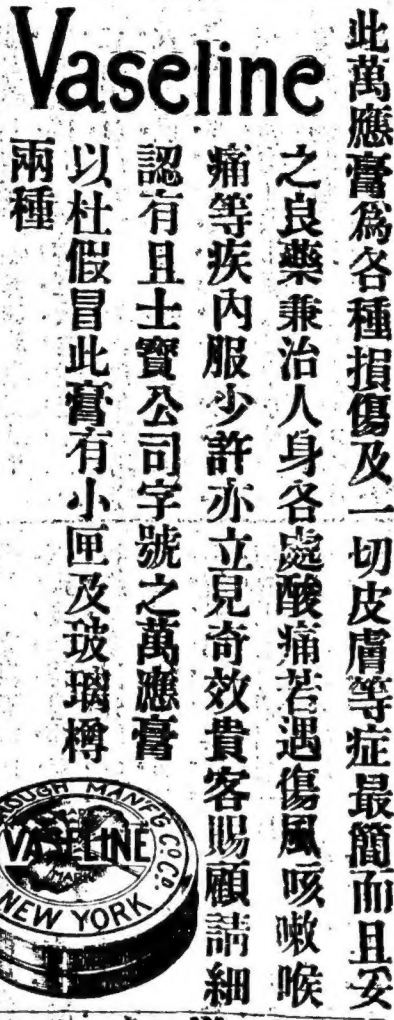 Vaseline
此萬應膏爲各種損傷及一切皮膚等症最簡而且妥
之良藥兼治人身各處酸痛若遇傷風咳嗽喉
痛等疾內服少許亦立見奇效貴客賜顧請細
認有且士寶公司字號之萬應膏
以杜假冒此膏有小匣及玻璃樽
兩種
OUGH MANF'G CO.
VASELINE
MARK
NEW YORK